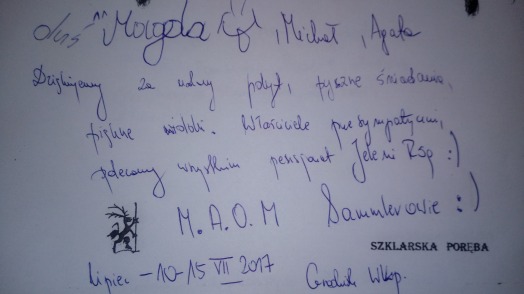 Magda, Michał, Agata
Dziękujemy za udany pobyt, pyszne śniadania,
piękne widoki. Właściciele przesympatyczni,
polecamy wszystkim pensjonat Jeleni Róg :)
M.A.O.M Sammlerowie :)
SZKLARSKA PORĘBA
Lipiec - 10-15 VII 2017 Grodzisk Wlkp.